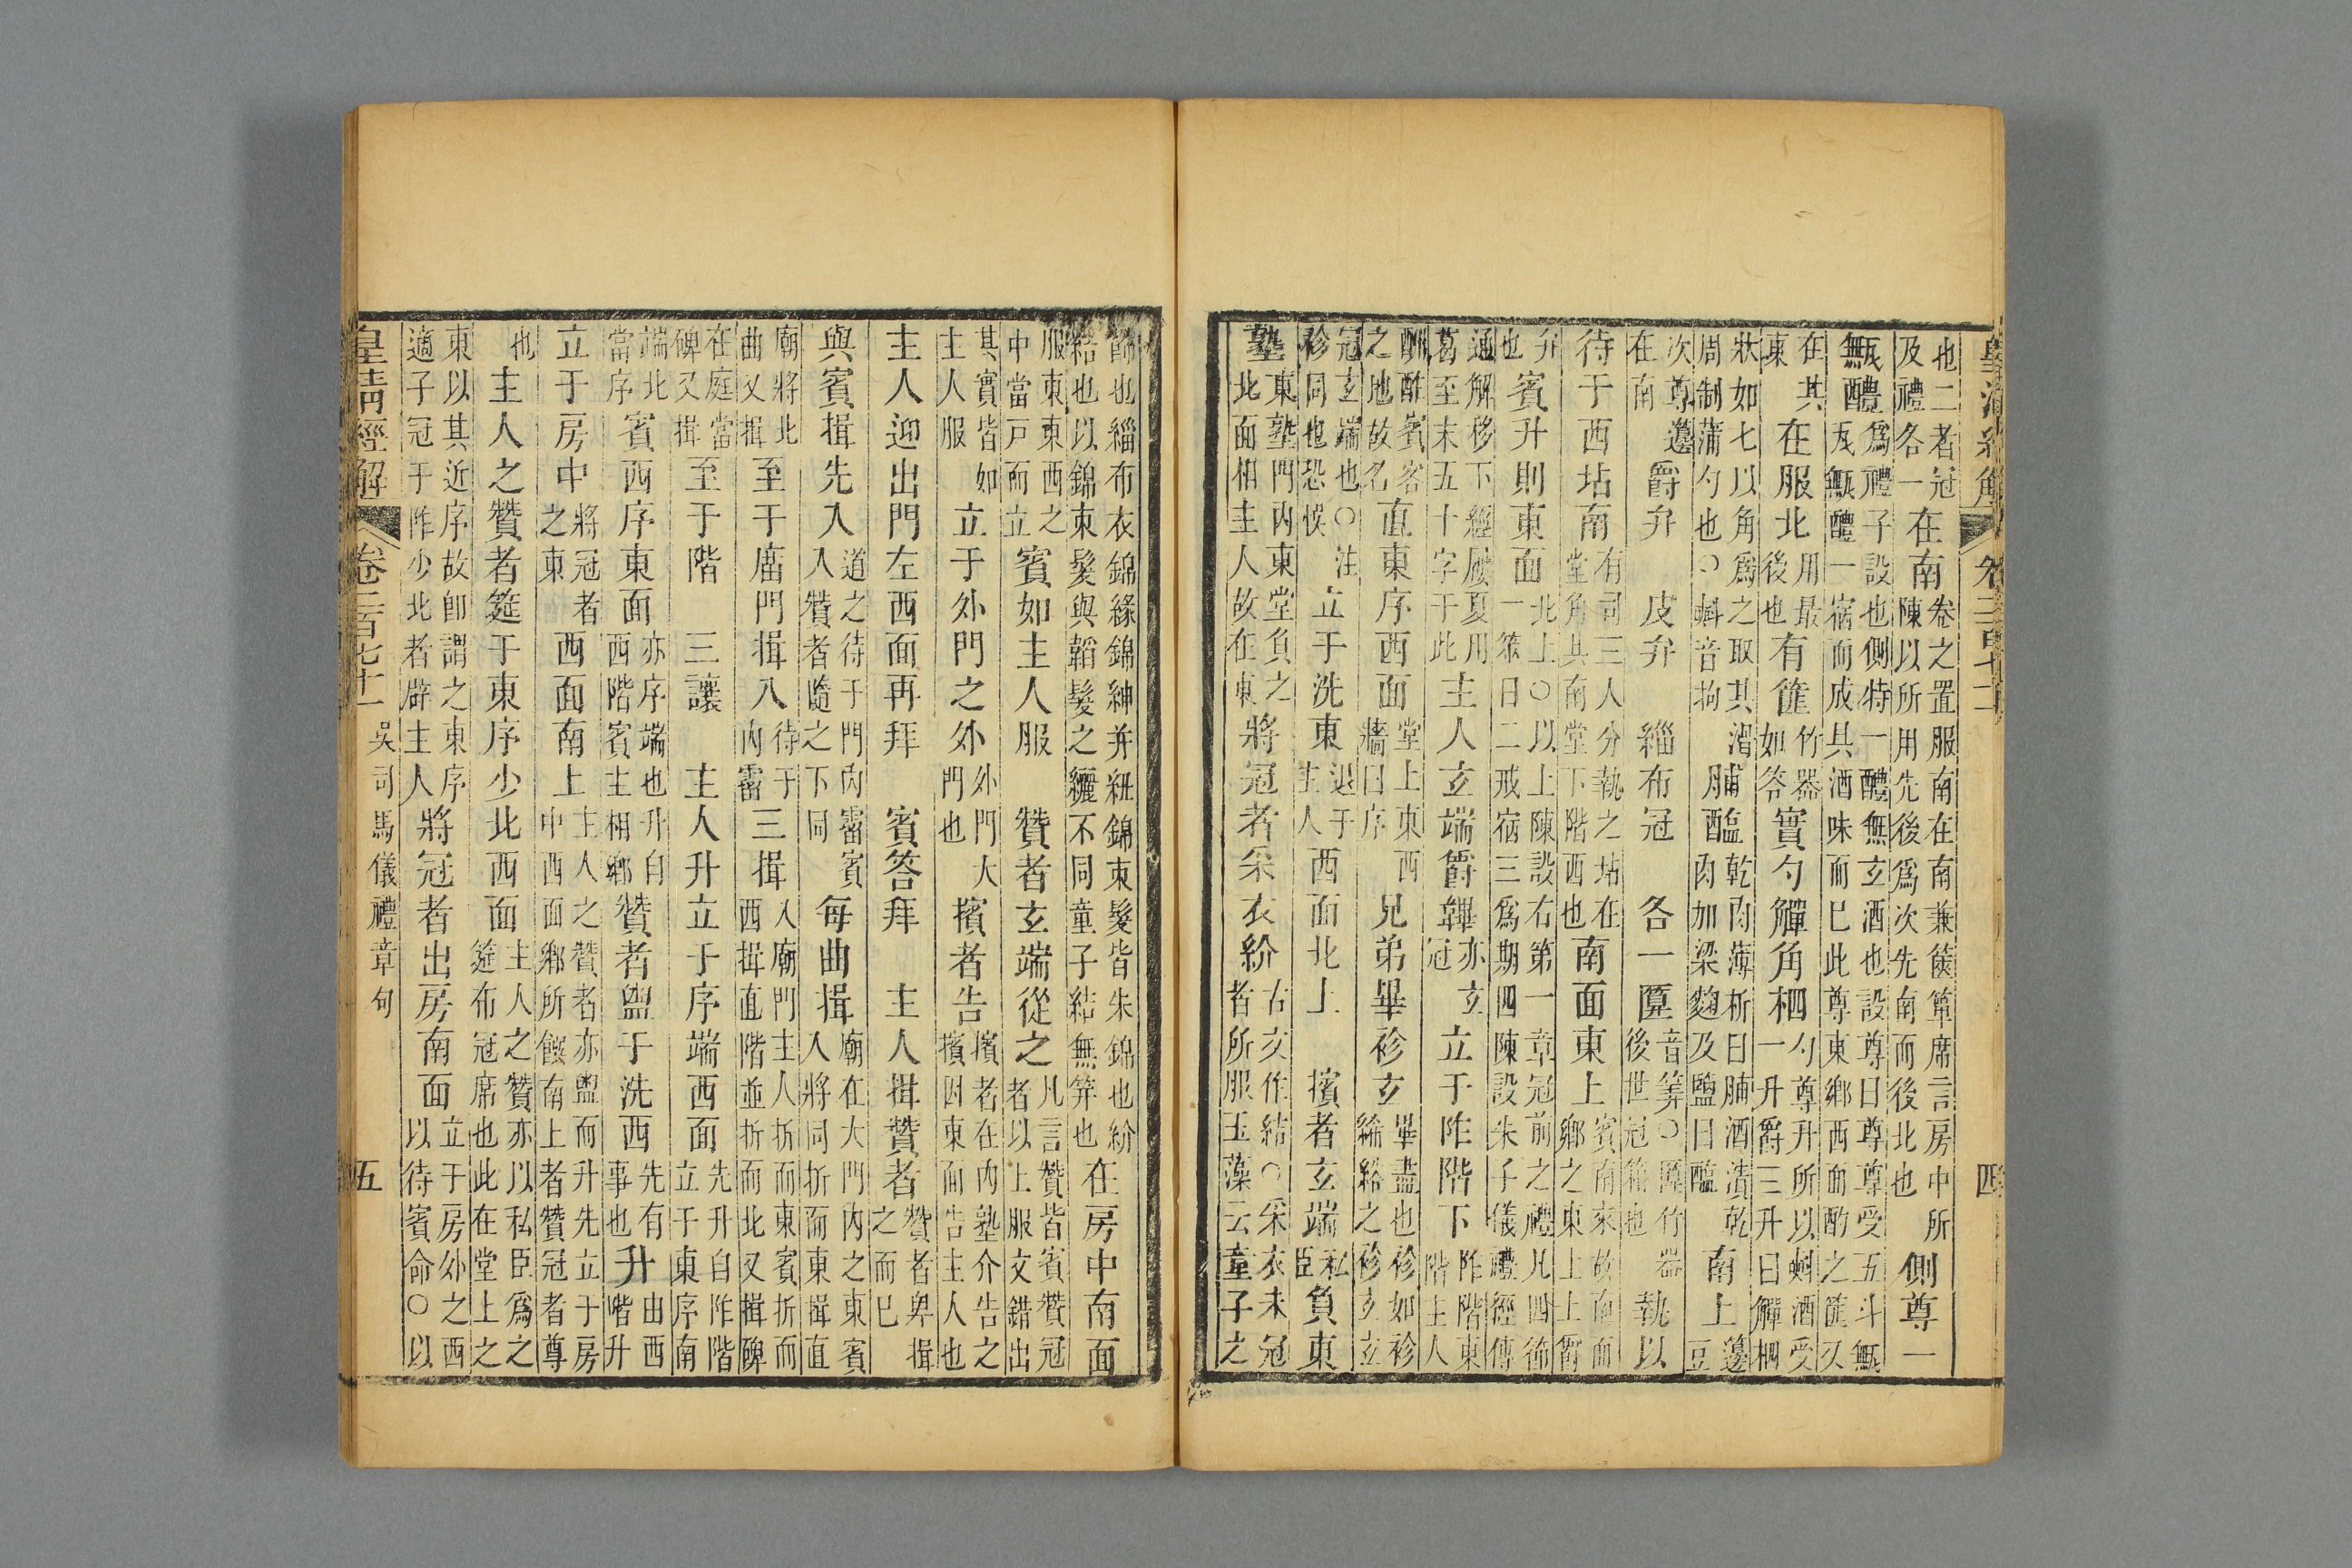 皇清經解 卷二百七十一 四
也二者冠
及禮各一
在南
卷之置服南在南兼篋簞席言房中所
陳以所用先後爲次先南而後北也
側尊一
甒醴
爲禮子設也側特一醴無玄酒也設尊曰尊尊受五斗甒
瓦甒醴一宿而成其酒味而巳此尊東鄉西面酌之篚又
在其
東
在服北
用最
後也
有篚
竹器
如笭
實勺觶角柶
勺尊升所以㪺酒受
一升爵三升曰觶柶
狀如匕以角爲之取其滑
周制蒲勺也○㪺音拘
脯醢
乾肉薄析曰脯酒漬乾
肉加梁麴及鹽曰醢
南上
籩
豆
次尊籩
在南
爵弁 皮弁 緇布冠 各一匴
音筭○匴竹器
後世冠箱也
執以
待于西坫南
有司三人分執之坫在
堂角其南堂下階西也
南面東上
賓南來故南面
鄉之東上上爵
弁
也
賓升則東面
北上○以上陳設右第一章冠前之禮凡四節
一筮日二戒宿三爲期四陳設朱子儀禮經傳
通解移下經屨夏用
葛至末五十字于此
主人玄端爵韠
亦玄
冠
立于阼階下
阼階東
階主人
酬酢賓客
之地故名
直東序西面
堂上東西
牆曰序
兄弟畢袗玄
畢盡也袗如袗
絺綌之袗玄玄
冠玄端也○注
袗同也恐悞
立于洗東
退于
主人
西面北上 擯者玄端
私
臣
負東
塾
東塾門內東堂負之
北面相主人故在東
將冠者采衣紒
古文作結○采衣未冠
者所服玉藻云童子之
飾也緇布衣錦緣錦紳并紐錦束髮皆朱錦也紒
結也以錦束髮與韜髮之纚不同童子結無笄也
在房中南面
服東東西之
中當戶而立
賓如主人服 贊者玄端從之
凡言贊皆賓贊冠
者以上服文錯出
其實皆如
主人服
立于外門之外
外門大
門也
擯者告
擯者在內塾介告之
擯因東面告主人也
主人迎出門左西面再拜 賓答拜 主人揖贊者
贊者卑揖
之而巳
與賓揖先入
道之待于門內霤賓
入贊者隨之下同
每曲揖
廟在大門內之東賓
入將同折而東揖直
廟將北
曲又揖
至于廟門揖入
待于
內霤
三揖
入廟門主人折而東賓折而
西揖直階並折而北又揖碑
在庭當
碑又揖
至于階 三讓 主人升立于序端西面
先升自阼階
立于東序南
端北
當序
賓西序東面
亦序端也升自
西階賓主相鄉
贊者盥于洗西
先有
事也
升
由西
階升
立于房中
將冠者
之東
西面南上
主人之贊者亦盥而升先立于房
中西面鄉所饌南上者贊冠者尊
也
主人之贊者筵于東序少北西面
主人之贊亦以私臣爲之
筵布冠席也此在堂上之
東以其近序故卽謂之東序
適子冠于阼少北者辟主人
將冠者出房南面
立于房外之西
以待賓命○以
皇清經解 卷二百七十一 吳司馬儀禮章句 五